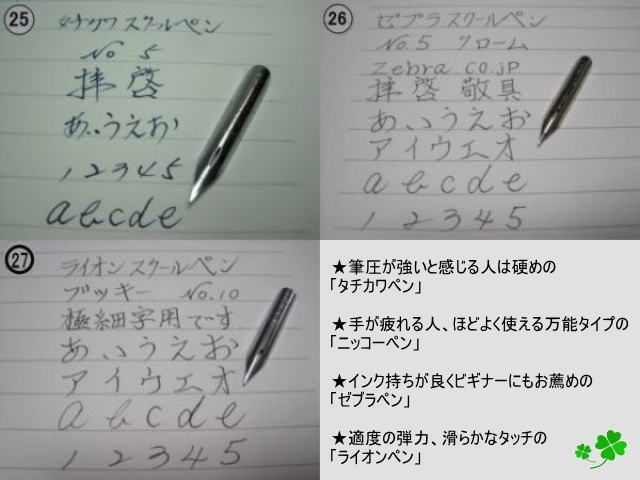 25
タチカワ スクールペン
No 5
拝啓
あいうえお
1 2 3 4 5
a b c d e
26
ゼブラスクールペン
No.5 クローム
Zebra.co.jp
拝啓 敬具
あいうえお
アイウエオ
a b c d e
1 2 3 4 5
27
ライオンスクールペン
ブッキー No.10
極細字用です
あいうえお
アイウエオ
a b c d e
1 2 3 4 5
★筆圧が強いと感じる人は硬めの
「タチカワペン」
★手が疲れる人、ほどよく使える万能タイプの
「ニッコーペン」
★インク持ちが良くビギナーにもお薦めの
「ゼブラペン」
★適度の弾力、滑らかなタッチの
「ライオンペン」